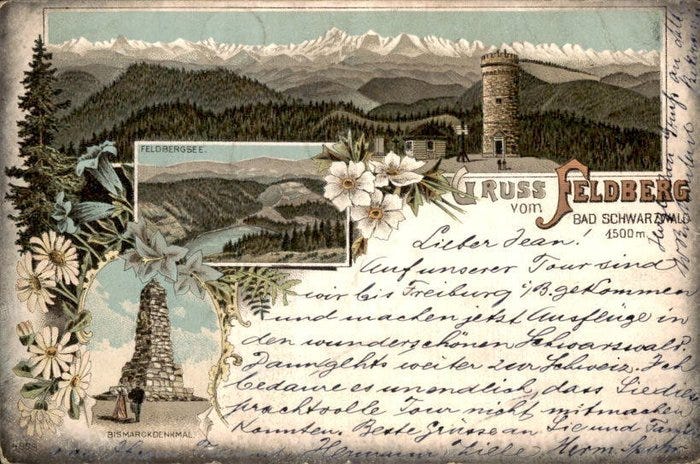 FELDBERGSEE.
GRUSS
vom
FELDBERG
BAD SCHWARZWALD
1500 m.
Lieber Jean!
Auf unserer Tour sind
wir bis Freiburg i/B. gekommen
und machen jetzt Ausflüge in
den wunderschönen Schwarzwald.
Dann gehts weiter zur Schweiz. Ich
bedaure es unendlich, dass Sie die
prachtvolle Tour nicht mitmachen
konnten. Beste Grüsse an Sie und Fam
Hermann
BISMARCKDENKMAL.